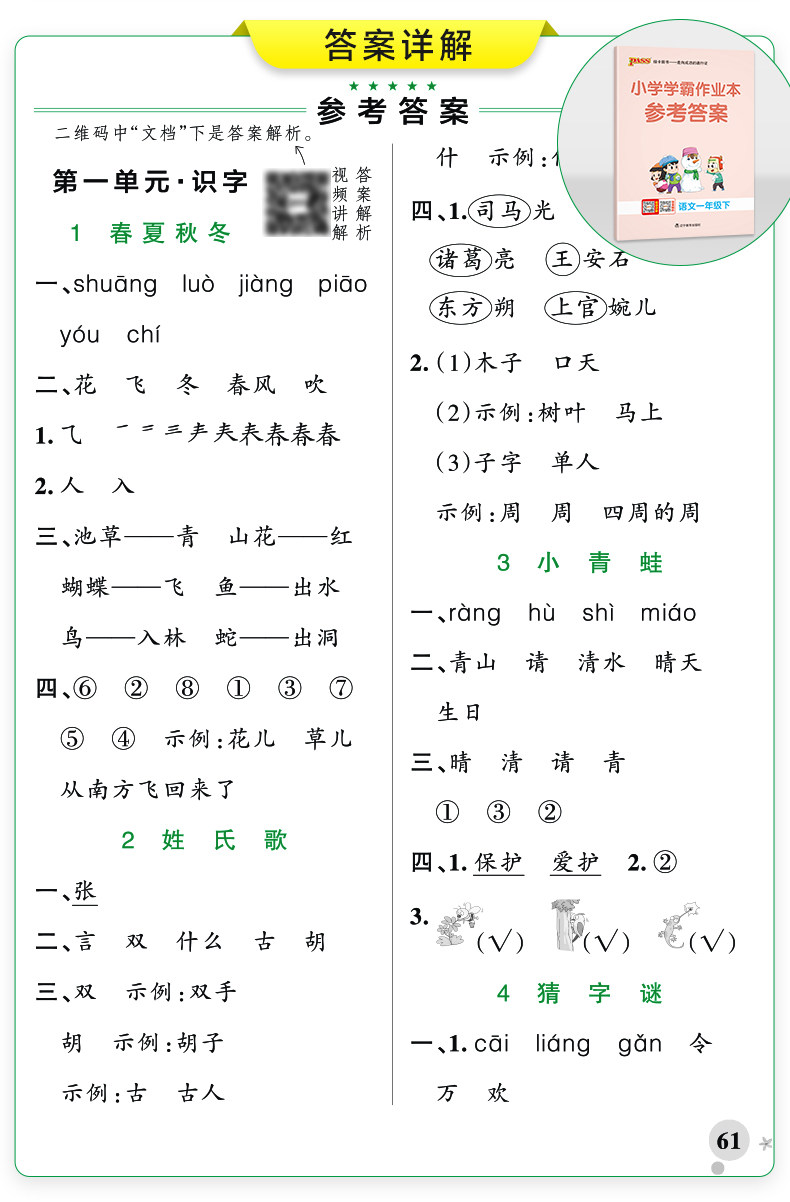 答案详解
参考答案
二维码中“文档”下是答案解析。
第一单元·识字
视频讲解
答案解析
1 春夏秋冬
一、shuāng luò jiàng piāo
yóu chí
二、花 飞 冬 春风 吹
1.⺄ 一 二 三 𡗗 春 春 春
2.人 入
三、池草——青 山花——红
蝴蝶——飞 鱼——出水
鸟——入林 蛇——出洞
四、⑥ ② ⑧ ① ③ ⑦
⑤ ④ 示例:花儿 草儿
从南方飞回来了
2 姓氏歌
一、张
二、言 双 什么 古 胡
三、双 示例:双手
胡 示例:胡子
示例:古 古人
什 示例:
四、1.司马光
诸葛亮 王安石
东方朔 上官婉儿
2.(1)木子 口天
(2)示例:树叶 马上
(3)子字 单人
示例:周 周 四周的周
3 小青蛙
一、ràng hù shì miáo
二、青山 请 清水 晴天
生日
三、晴 清 请 青
① ③ ②
四、1.保护 爱护 2.②
3. (√) (√) (√)
4 猜字谜
一、1.cāi liáng gǎn 令
万 欢
61
PASS
小学学霸作业本
参考答案
语文一年级下